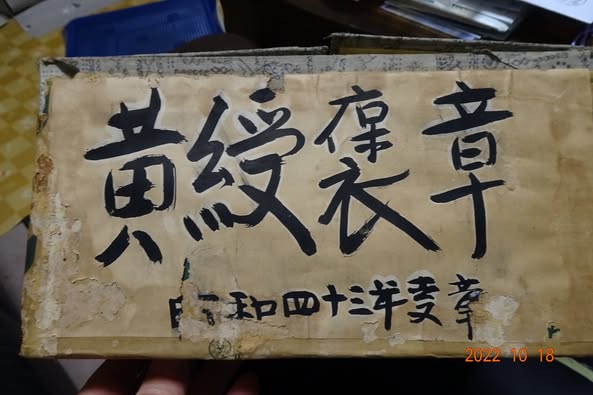 黄綬褒章
昭和四十三年受章
2022 10 18